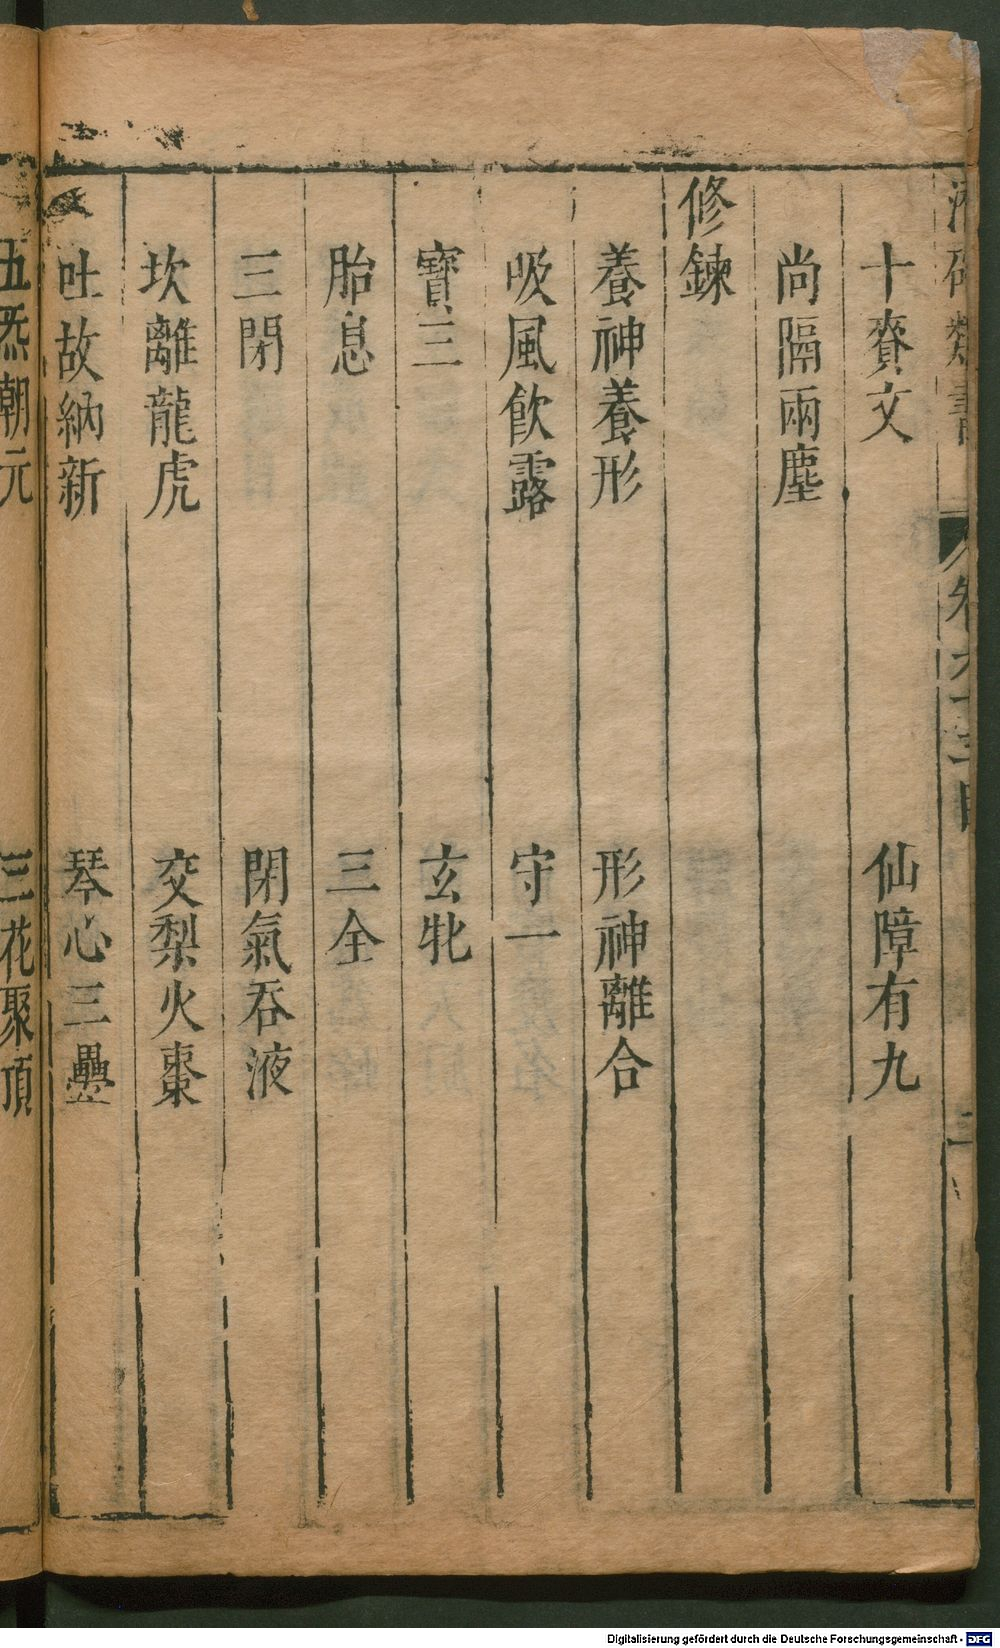 類書 卷 二
十賚文 仙障有九
尚隔兩塵
修鍊
養神養形 形神離合
吸風飲露 守一
寶三 玄牝
胎息 三全
三閉 閉氣吞液
坎離龍虎 交梨火棗
吐故納新 琴心三疊
五炁朝元 三花聚頂
Digitalisierung gefördert durch die Deutsche Forschungsgemeinschaft - DFG